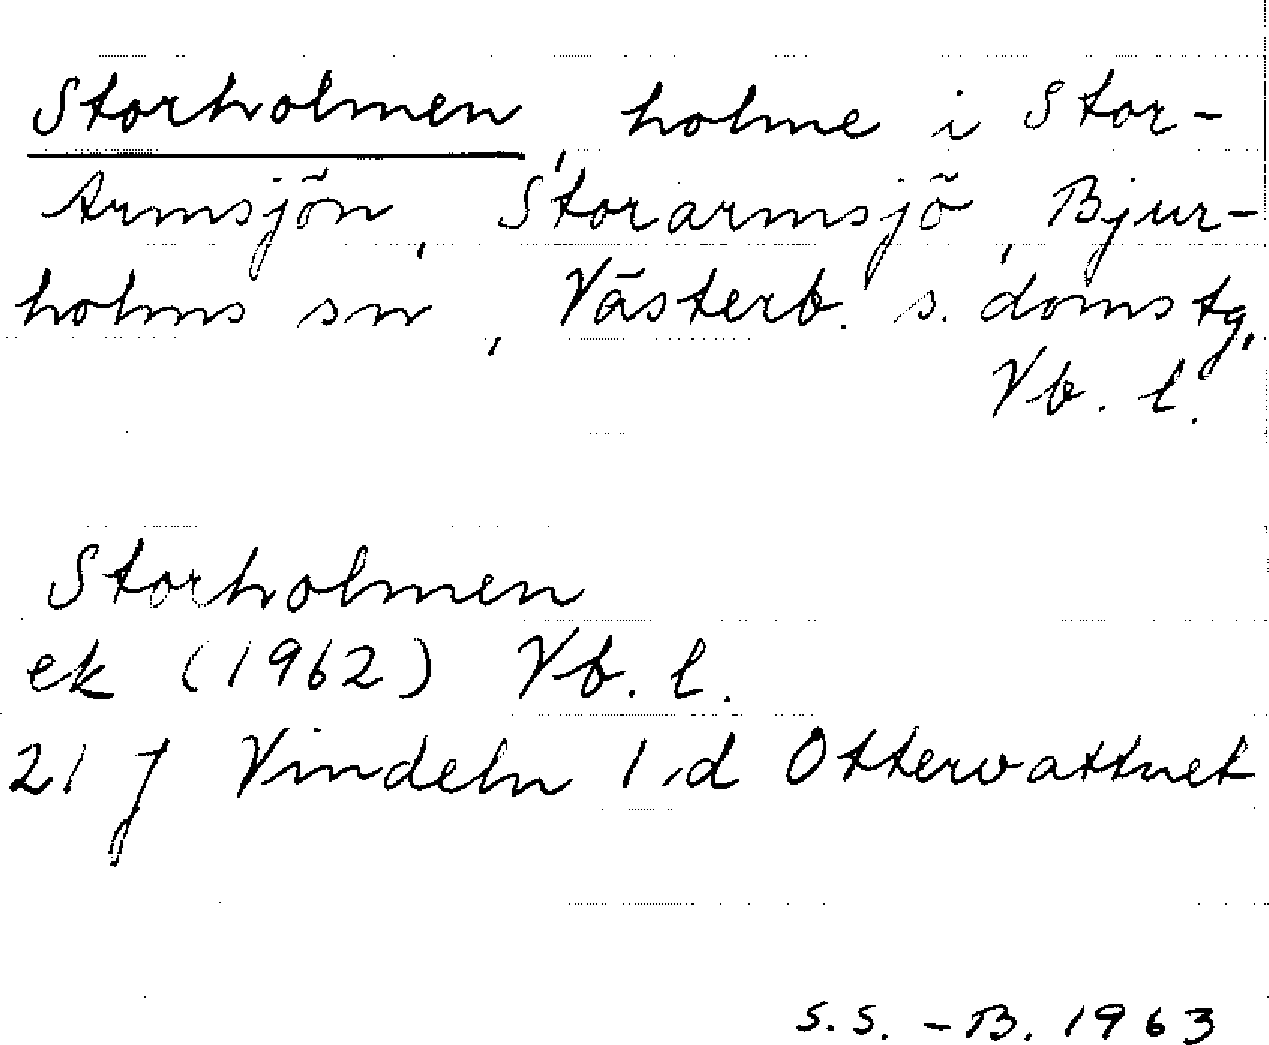 Storholmen, holme i Stor-
Armsjön, Storarmsjö, Bjur-
holms sn, Västerb. s. domstg,
Vb. l.
Storholmen
ek (1962) Vb. l.
21 J Vindeln 1 d Ottervattnet
S.S. - B. 1963